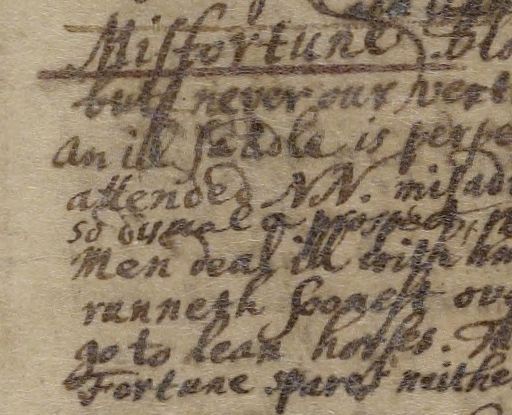 Misfortune. bl
but never our vert
An ill saddle is perpe
attended NN. misad
so dismal a prospect,
Men deal ill with
runneth soonest ov
go to lean horses.
Fortune spares neithe